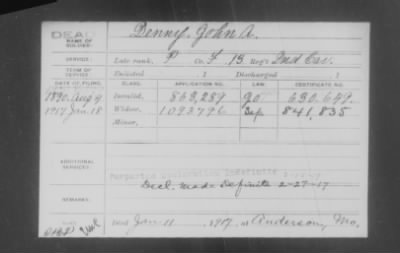 DEAD
Denny, John A.
NAME OF SOLDIER:
SERVICE:
Late rank, P Co. F, 13 Reg't 2nd Cav.
TERM OF SERVICE:
Enlisted , 1 Discharged , 1
DATE OF FILING. CLASS. APPLICATION NO. LAW. CERTIFICATE NO.
1890, Aug 9 Invalid, 863,289 90 630,649
1917 Jan. 18 Widow, 1093796 Sep 841,835
Minor,
ADDITIONAL SERVICES:
Purported Declaration Indefinite
Decl. made Definite 2-27-17
REMARKS:
Died Jan. 11, 1917, at Anderson, Mo.